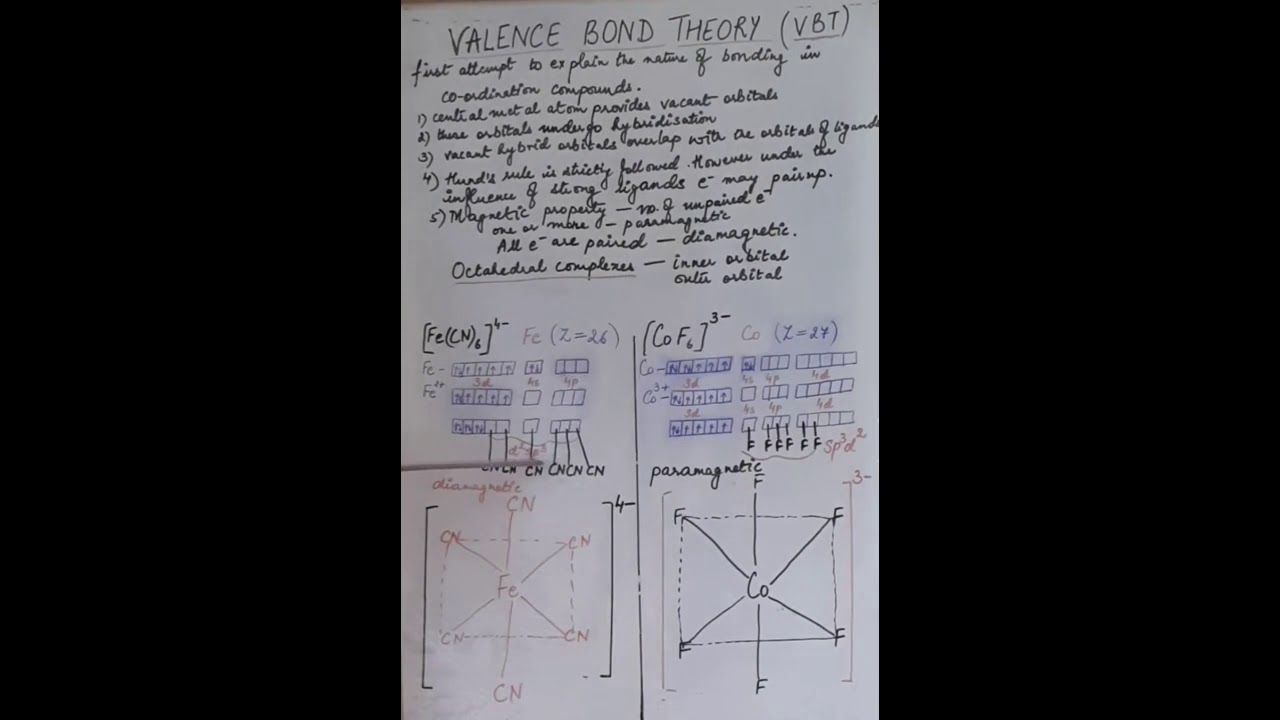 VALENCE BOND THEORY (VBT)
first attempt to explain the nature of bonding in
co-ordination compounds.
1) central metal atom provides vacant orbitals
2) these orbitals undergo hybridisation
3) vacant hybrid orbitals overlap with the orbitals of ligands
4) Hund's rule is strictly followed. However under the
influence of strong ligands e⁻ may pair up.
5) Magnetic property — no. of unpaired e⁻
one or more — paramagnetic
All e⁻ are paired — diamagnetic.
Octahedral complexes — inner orbital
outer orbital
[Fe(CN)₆]⁴⁻ Fe (Z=26)
Fe -
3d 4s 4p
Fe²⁺
d²sp³
CN CN CN CN CN CN
diamagnetic
4-
CN
CN CN
Fe
CN CN
CN
[CoF₆]³⁻ Co (Z=27)
Co -
3d 4s 4p 4d
Co³⁺ -
3d 4s 4p 4d
F F F F F F sp³d²
paramagnetic
3-
F
F F
Co
F F
F